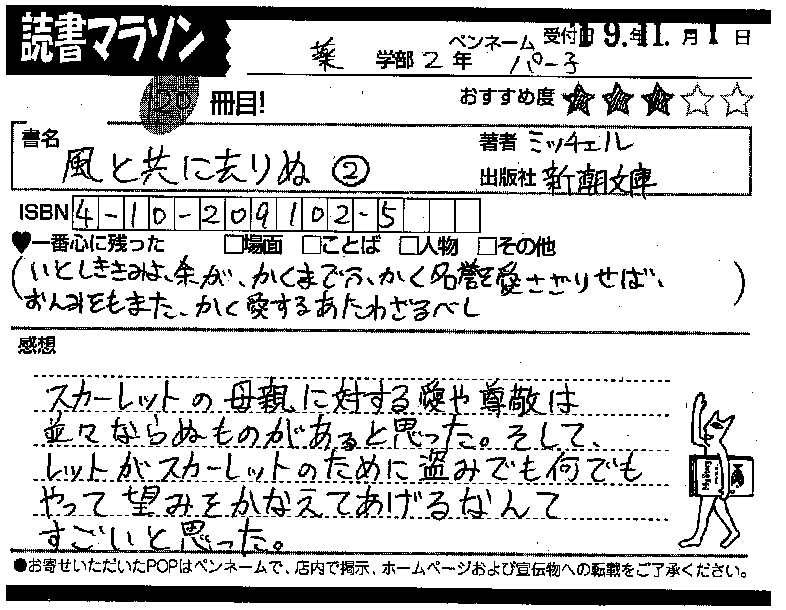 読書マラソン
薬 学部 2 年 ペンネーム パー子 受付日 19.年11.月1日
120 冊目!
おすすめ度 ★★★☆☆
書名 風と共に去りぬ ②
著者 ミッチェル
出版社 新潮文庫
ISBN 4-10-209102-5
♥一番心に残った □場面 □ことば □人物 □その他
(いとしききみよ、余が、かくまでふ、かく名誉を愛さざりせば、
おんみをもまた、かく愛するあたわざるべし)
感想
スカーレットの母親に対する愛や尊敬は
並々ならぬものがあると思った。そして、
レットがスカーレットのために盗みでも何でも
やって望みをかなえてあげるなんて
すごいと思った。
●お寄せいただいたPOPはペンネームで、店内で掲示、ホームページおよび宣伝物への転載をご了承ください。